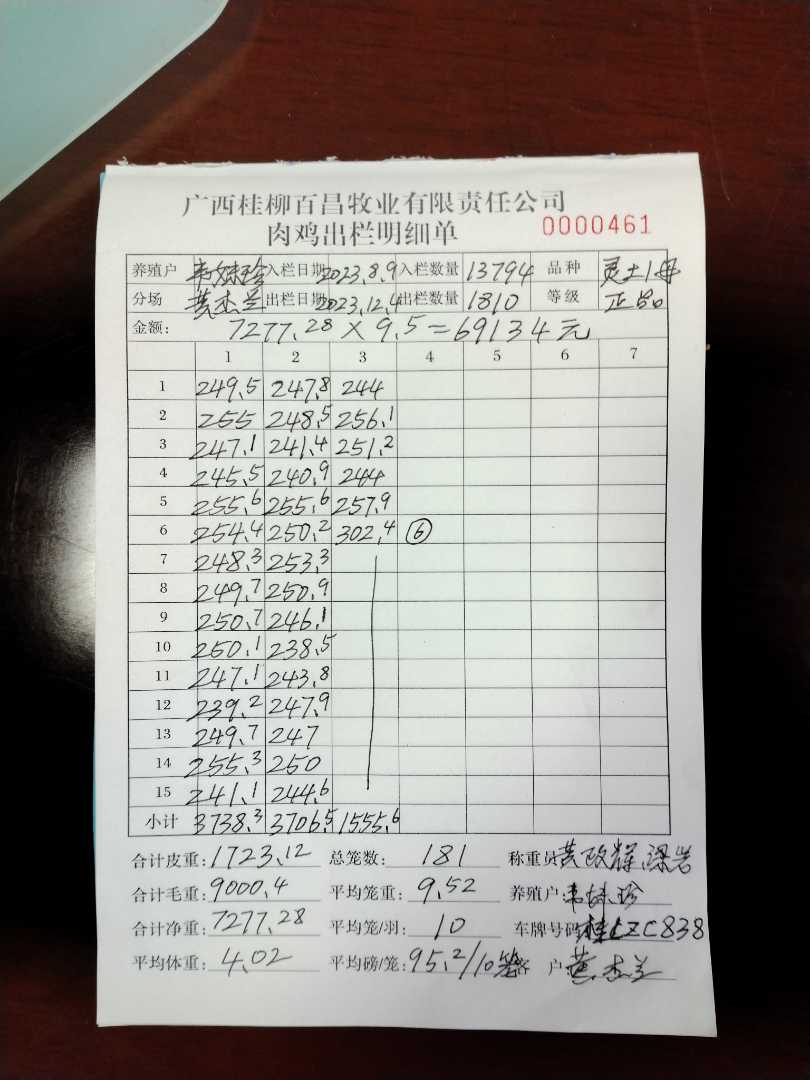 广西桂柳百昌牧业有限责任公司
肉鸡出栏明细单 0000461
养殖户 入栏日期 2023.8.9 入栏数量 13794 品种 灵土1母
分场 黄杰兰 出栏日期 2023.12.4 出栏数量 1810 等级 正品
金额: 7277.28 × 9.5 = 69134元
1 2 3 4 5 6 7
1 249.5 247.8 244
2 255 248.5 256.1
3 247.1 241.4 251.2
4 245.5 240.9 244
5 255.6 255.6 257.9
6 254.4 250.2 302.4 ⑥
7 248.3 253.3
8 249.7 250.9
9 250.7 246.1
10 250.1 238.5
11 247.1 243.8
12 239.2 247.9
13 249.7 247
14 255.3 250
15 241.1 244.6
小计 3738.3 3706.5 1555.6
合计皮重: 1723.12 总笼数: 181 称重员
合计毛重: 9000.4 平均笼重: 9.52 养殖户:
合计净重: 7277.28 平均笼/羽: 10 车牌号码: 桂LZC838
平均体重: 4.02 平均磅/笼: 95.2/10笼 客户: 黄杰兰